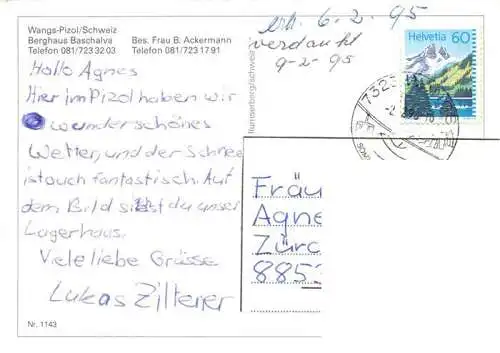 Wangs-Pizol/Schweiz
Berghaus Baschalva
Telefon 081/723 32 03
Bes. Frau B. Ackermann
Telefon 081/723 17 91
erh. 6-2-95
verdankt
9-2-95
Helvetia 60
7323
Hallo Agnes
Hier im Pizol haben wir
wunderschönes
Wetter, und der Schnee
ist auch fantastisch. Auf
dem Bild siehst du unser
Lagerhaus.
Viele liebe Grüsse
Lukas Zilterer
Fräu
Agne
Zürc
8853
Nr. 1143